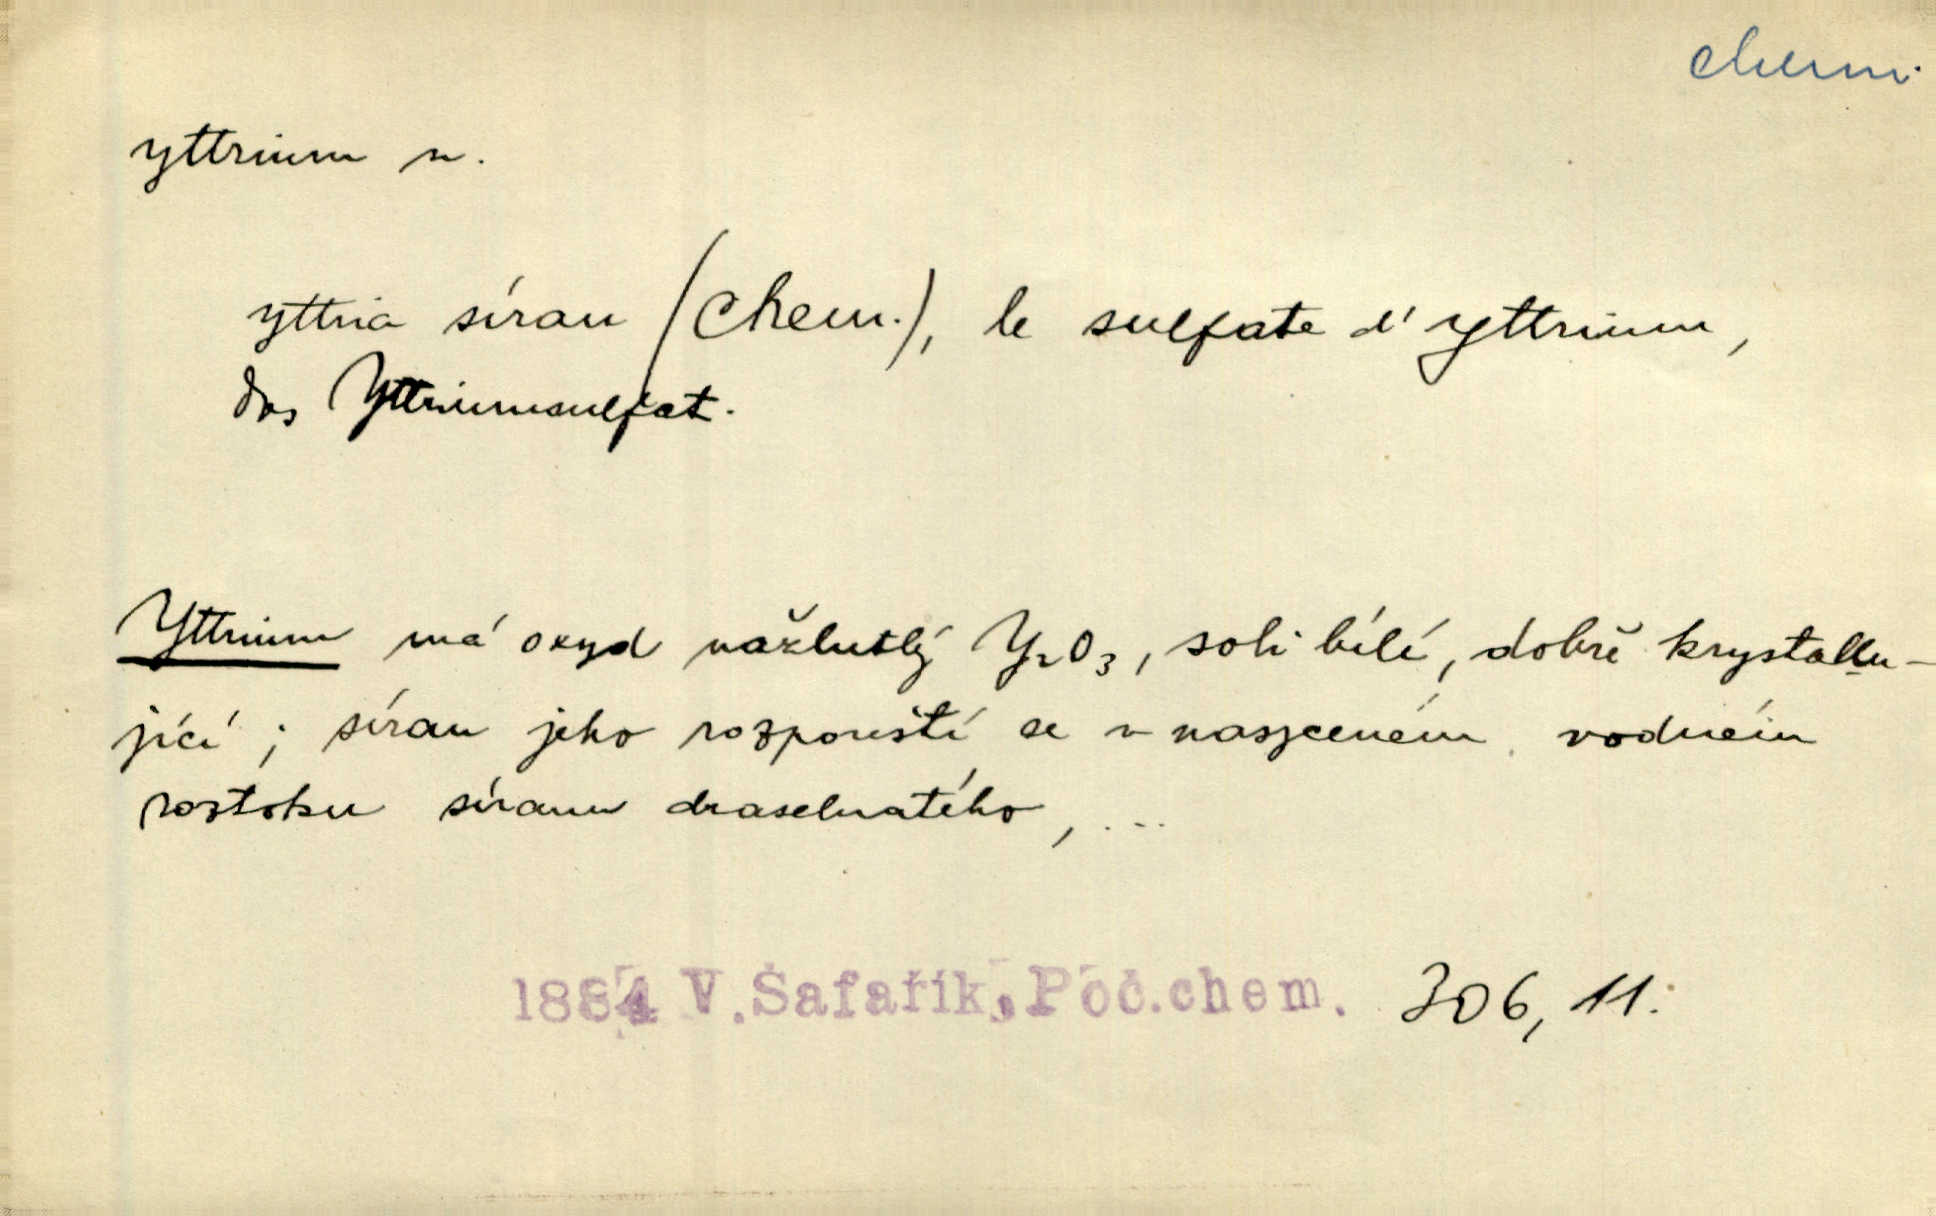 chem.
yttrium n.
yttria síran (Chem.), le sulfate d'yttrium,
das Yttriumsulfat.
Yttrium má oxyd nažlutlý Y₂O₃, soli bílé, dobře krystallu-
jící; síran jeho rozpouští se v nasyceném vodném
roztoku síranu draselnatého, ...
1884 V. Šafařík, Poč.chem. 306, 11.